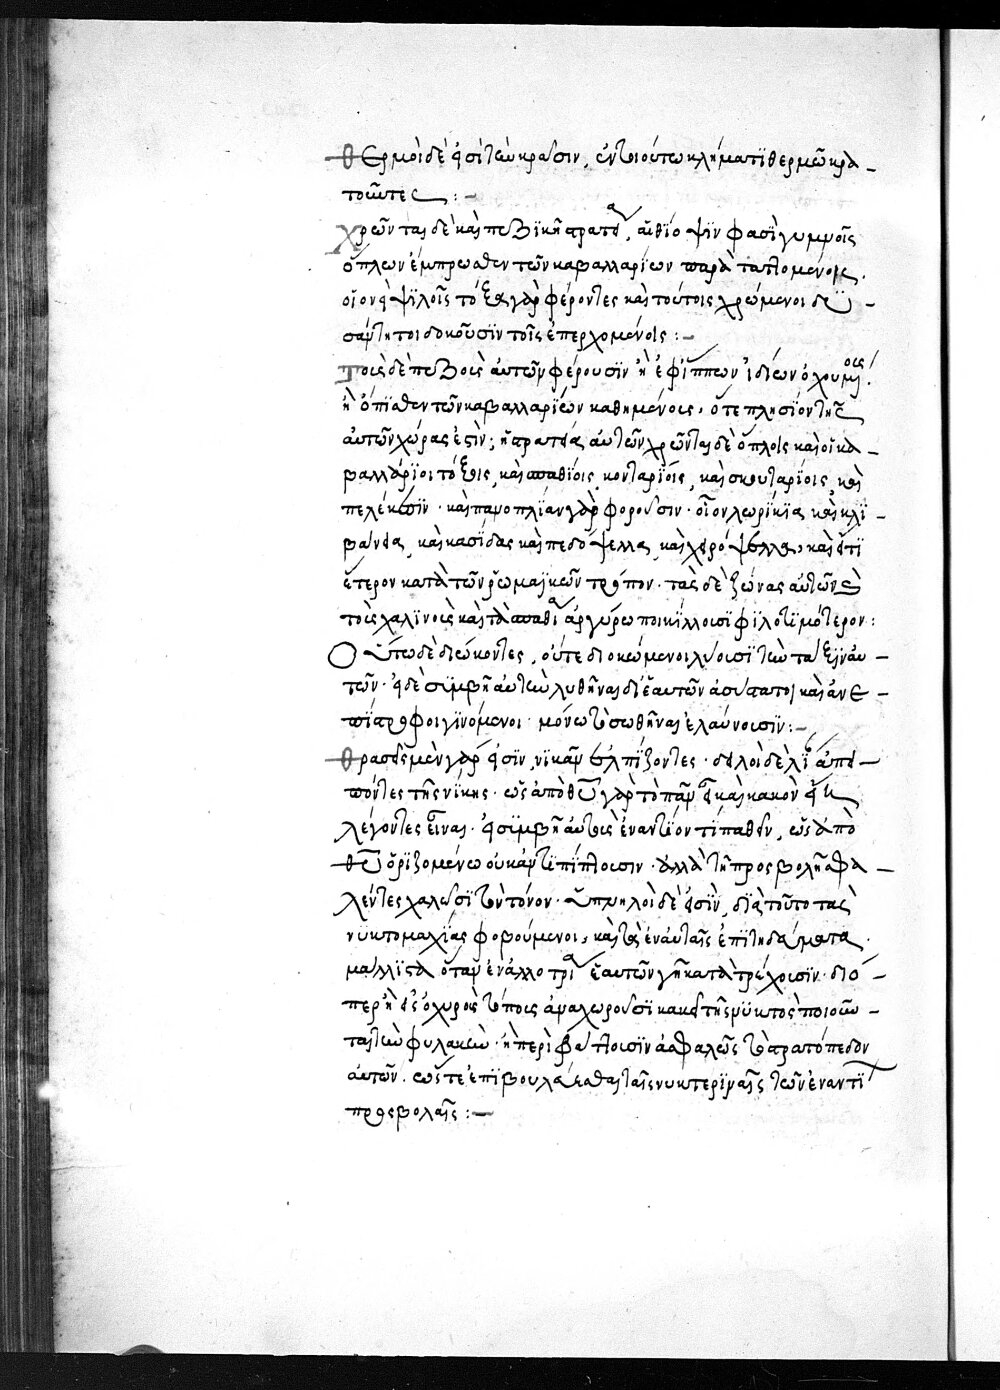 θερμοὶ δέ εἰσι τὴν κρᾶσιν, ἐν τοιούτω κλήματι θερμῶ κρα–
τοῦντες :–
χρῶνται δὲ καὶ πεζικῆ στρατεία, αἰθίοψιν φασὶ γυμνοῖς
ὅπλων ἔμπρωσθεν τῶν καβαλλαρίων παρὰ ταττομένοις.
οἷον ἢ ψιλοῖς τόξα γὰρ φέροντες καὶ τούτοις χρώμενοι δυ–
σάντητοι δοκοῦσιν τοῖς ἐπερχομένοις :–
τοὺς δὲ πεζοὺς αὐτῶν φέρουσιν ἢ ἐφ' ἵππων ἰδίων ὀχουμένους.
ἢ ὄπισθεν τῶν καβαλλαρίων καθημένους, ὅτε πλησίον τῆς
αὐτῶν χώρας ἐστὶν ἡ στρατεία αὐτῶν χρῶνται δὲ ὅπλοις καὶ οἱ κα–
βαλλάριοι τόξοις, καὶ σπαθίοις, κονταρίοις, καὶ σκουταρίοις, καὶ
πελέκεσιν · καὶ πανοπλίαν γὰρ φοροῦσιν · οἷον λωρίκια καὶ κλι–
βάνια, καὶ κασίδας καὶ πεδόψελλα, καὶ χερόψελλα, καὶ εἴ τι
ἕτερον κατὰ τῶν ῥωμαϊκῶν τρόπον · τὰς δὲ ζώνας αὐτῶν καὶ
τοὺς χαλινοὺς καὶ τὰ σπαθία ἀργύρω ποικίλλουσι φιλοτιμότερον :
Οὕπω δὲ διώκοντες, οὔτε διοκώμενοι λύουσι τὴν τάξιν αὐ–
τῶν · εἰ δὲ συμβῆ αὐτὴν λυθῆναι δι' ἑαυτῶν ἀσύστατοι καὶ ἀνε–
πίστροφοι γινόμενοι · μόνω τὸ σωθῆναι ἐλαύνουσιν :–
θρασεῖς μὲν γάρ εἰσιν, νικᾶν ἐλπίζοντες · δειλοὶ δὲ λίαν ἀπει–
πόντες τῆς νίκης · ὡς ἀπὸ θυ γὰρ τὸ πᾶν καὶ κακὸν εἶναι
λέγοντες εἶναι · εἰ συμβῆ αὐτοὺς ἐναντίον τι παθεῖν, ὡς ἀπὸ
θυ ὁριζομένω οὐκ ἀντιπίπτουσιν · ἀλλὰ τῆ προσβολῆ σφα–
λέντες χαλῶσι τὸν τόνον · ὑπνηλοὶ δέ εἰσιν, διὰ τοῦτο τὰς
νυκτομαχίας φοβούμενοι, καὶ τὰ ἐν αὐταῖς ἐπιτηδεύματα.
μάλλιστα ὅταν ἐν ἀλλοτρία ἑαυτῶν γῆ κατατρέχουσιν · διό–
περ ἢ εἰς ὀχυροὺς τόπους ἀναχωροῦσι κακεῖ τῆς νυκτὸς ποιοῦν–
ται τὴν φυλακὴν · ἢ περιφράττουσιν ἀσφαλῶς τὸ στρατόπεδον
αὐτῶν. ὥστε ἐπιβουλεύεσθαι ταῖς νυκτεριναῖς τῶν ἐναντίων
προσβολαῖς :–